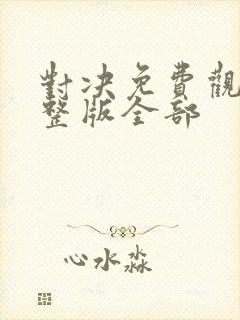 對决免費觀
整版全部
心水淼